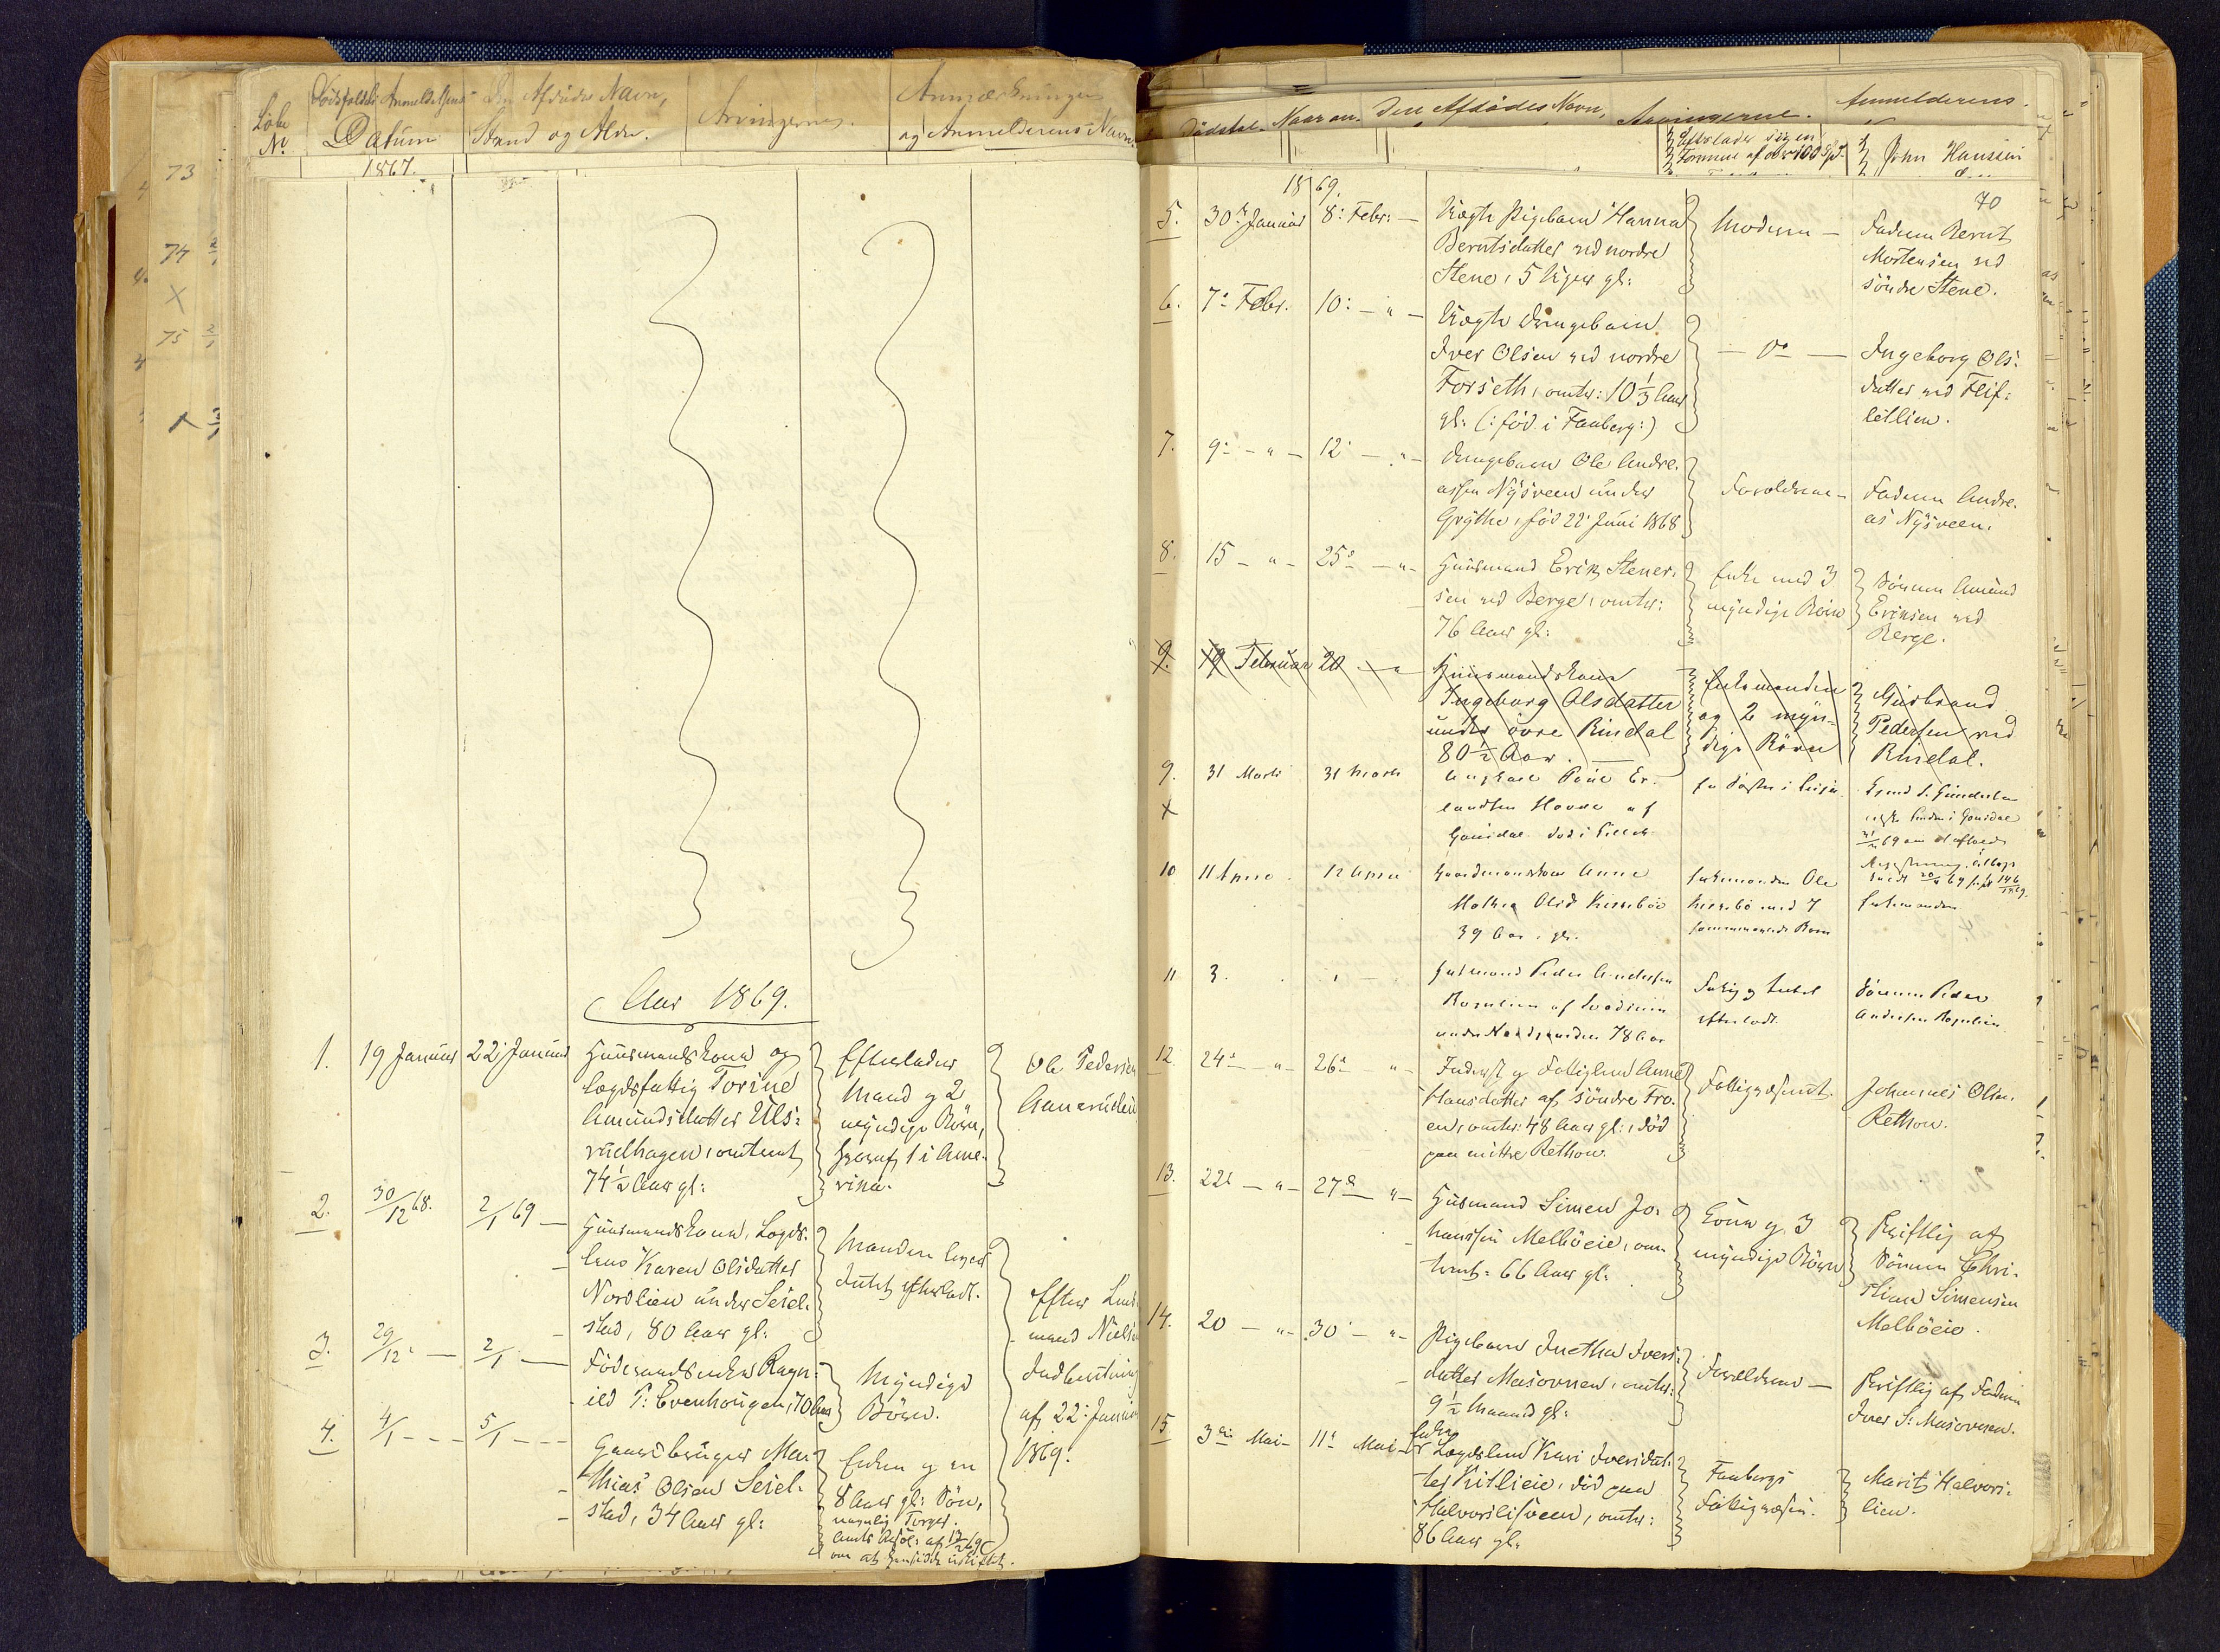 Löbe
No
Dödsfaldets Anmeldelsens
Datum
Den Afdödes Navn,
Stand og Alder.
Arvingerne.
Anmærkninger
og Anmelderens Navn.
1867.
Aar 1869.
1.
19 Januar
22 Januar
Huusmandskone og
Lægdsfattig Torine
Amundsdatter Uls-
rudhagen, omtrent
74½ Aar gl:
Efterlader
Mand og 2
myndige Börn,
hvoraf 1 i Ame-
rika.
Ole Pedersen
2.
30/12 68.
2/1 69
Huusmandskone, Lægds-
lem Karen Olsdatter
Nordlien under Seiel-
stad, 80 Aar gl:
Manden
Intet efterladt.
Efter Lens-
mand Nielsens
Indberetning
af 22: Januar
1869.
3.
29/12
2/1
Föderaadsenken Ragn-
ild P: Evenhougen, 70 Aar
Myndige
Börn.
4.
4/1
5/1
Gaardbruger Mat-
thias Olsen Seiel-
stad, 34 Aar gl:
Enken og en
8 Aar gl: Sön,
navnlig Torger.
73
74
75
Dödsfal.
Naar an.
Den Afdödes Navn,
Arvingerne.
Anmelderens
Efterlader sig en
Formue af over 100 Spd.
John Hanssen
1869.
70
5.
30te Januar
8: Febr:
Uægte Pigebarn Hanna
Berntsdatter ved nordre
Stene, 5 Uger gl:
Moderen
Faderen Bernt
Mortensen ved
söndre Stene.
6.
7: Febr.
10: - " -
Uægte Drengebarn
Iver Olsen ved nordre
Forseth, omtr: 10⅓ Aar
gl: (: föd i Faaberg:)
Do
Ingeborg Ols-
datter ved Flif-
letlien.
7.
9: - " -
12 - " -
Drengebarn Ole Andre-
assen Nysveen under
Grythe, föd 22 Juni 1868
Forældrene
Faderen Andre-
as Nysveen.
8.
15 - " -
25: - " -
Huusmand Erik Stener-
sen ved Berge, omtr:
76 Aar gl:
Enke med 3
myndige Börn
Sönnen Amund
Eriksen ved
Berge.
9.
19 Februar
20 - "
Huusmandskone
Ingeborg Olsdatter
under övre Rindal
80½ Aar.
Enkemanden
og 2 myn-
dige Börn
Gudbrand
Pedersen ved
Rindal.
9.
X
31 Marts
31 Marts
Ungkarl Poul Er-
landsen Hovde af
Gausdal död i
En Söster i
i Gousdal
10
11 April
12 April
Gaardmandskone Anne
Mathea Olsd
39 Aar gl.
Enkemanden Ole
med 7
Börn
Enkemanden
11
3.
Husmand Peder Andersen
78 Aar
Fattig og Intet
efterladt
Sönnen Peder
Andersen
12.
24: - " -
26: - " -
Inderst og Fattiglem Anne
Hansdatter af söndre Fro-
en, omtr: 48 Aar gl:, död
paa mittre Rethon.
Fattigvæsenet.
Johannes Olsen
Rethon.
13.
22: - " -
27de - " -
Husmand Simen Jo-
hanssen Melböeie, om-
trent: 66 Aar gl:
Kone og 3
myndige Börn
Skriftlig af
Sönnen Chri-
stian Simensen
Melböeie.
14.
20 - " -
30 - " -
Pigebarn Inetha Ivers-
datter Musovnen, omtr:
9½ Maaned gl:
Forældrene
Skriftlig af Faderen
Iver S: Musovnen.
15
3die Mai
11: Mai
Enke
Lægdslem Kari Iversdat-
ter Kitlien, död paa
Halvorslisveen, omtr:
86 Aar gl:
Faabergs
Fattigvæsen.
Marit Halvors-
lien.